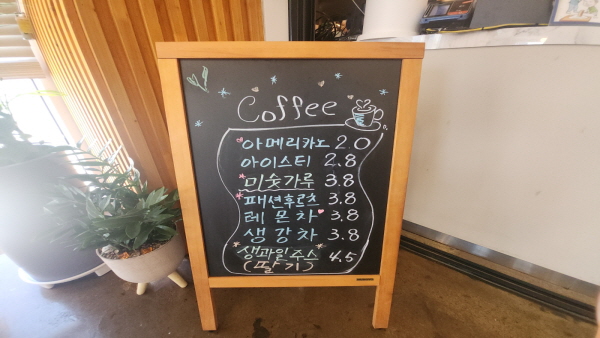 Coffee
아메리카노 2.0
아이스티 2.8
미숫가루 3.8
패션후르츠 3.8
레몬차 3.8
생강차 3.8
생과일주스 4.5
(딸기)